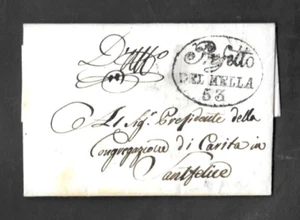 Prefetto
DEL MELLA
53
Al Sig.r Presidente della
Congregazione di Carita in
Sanfelice